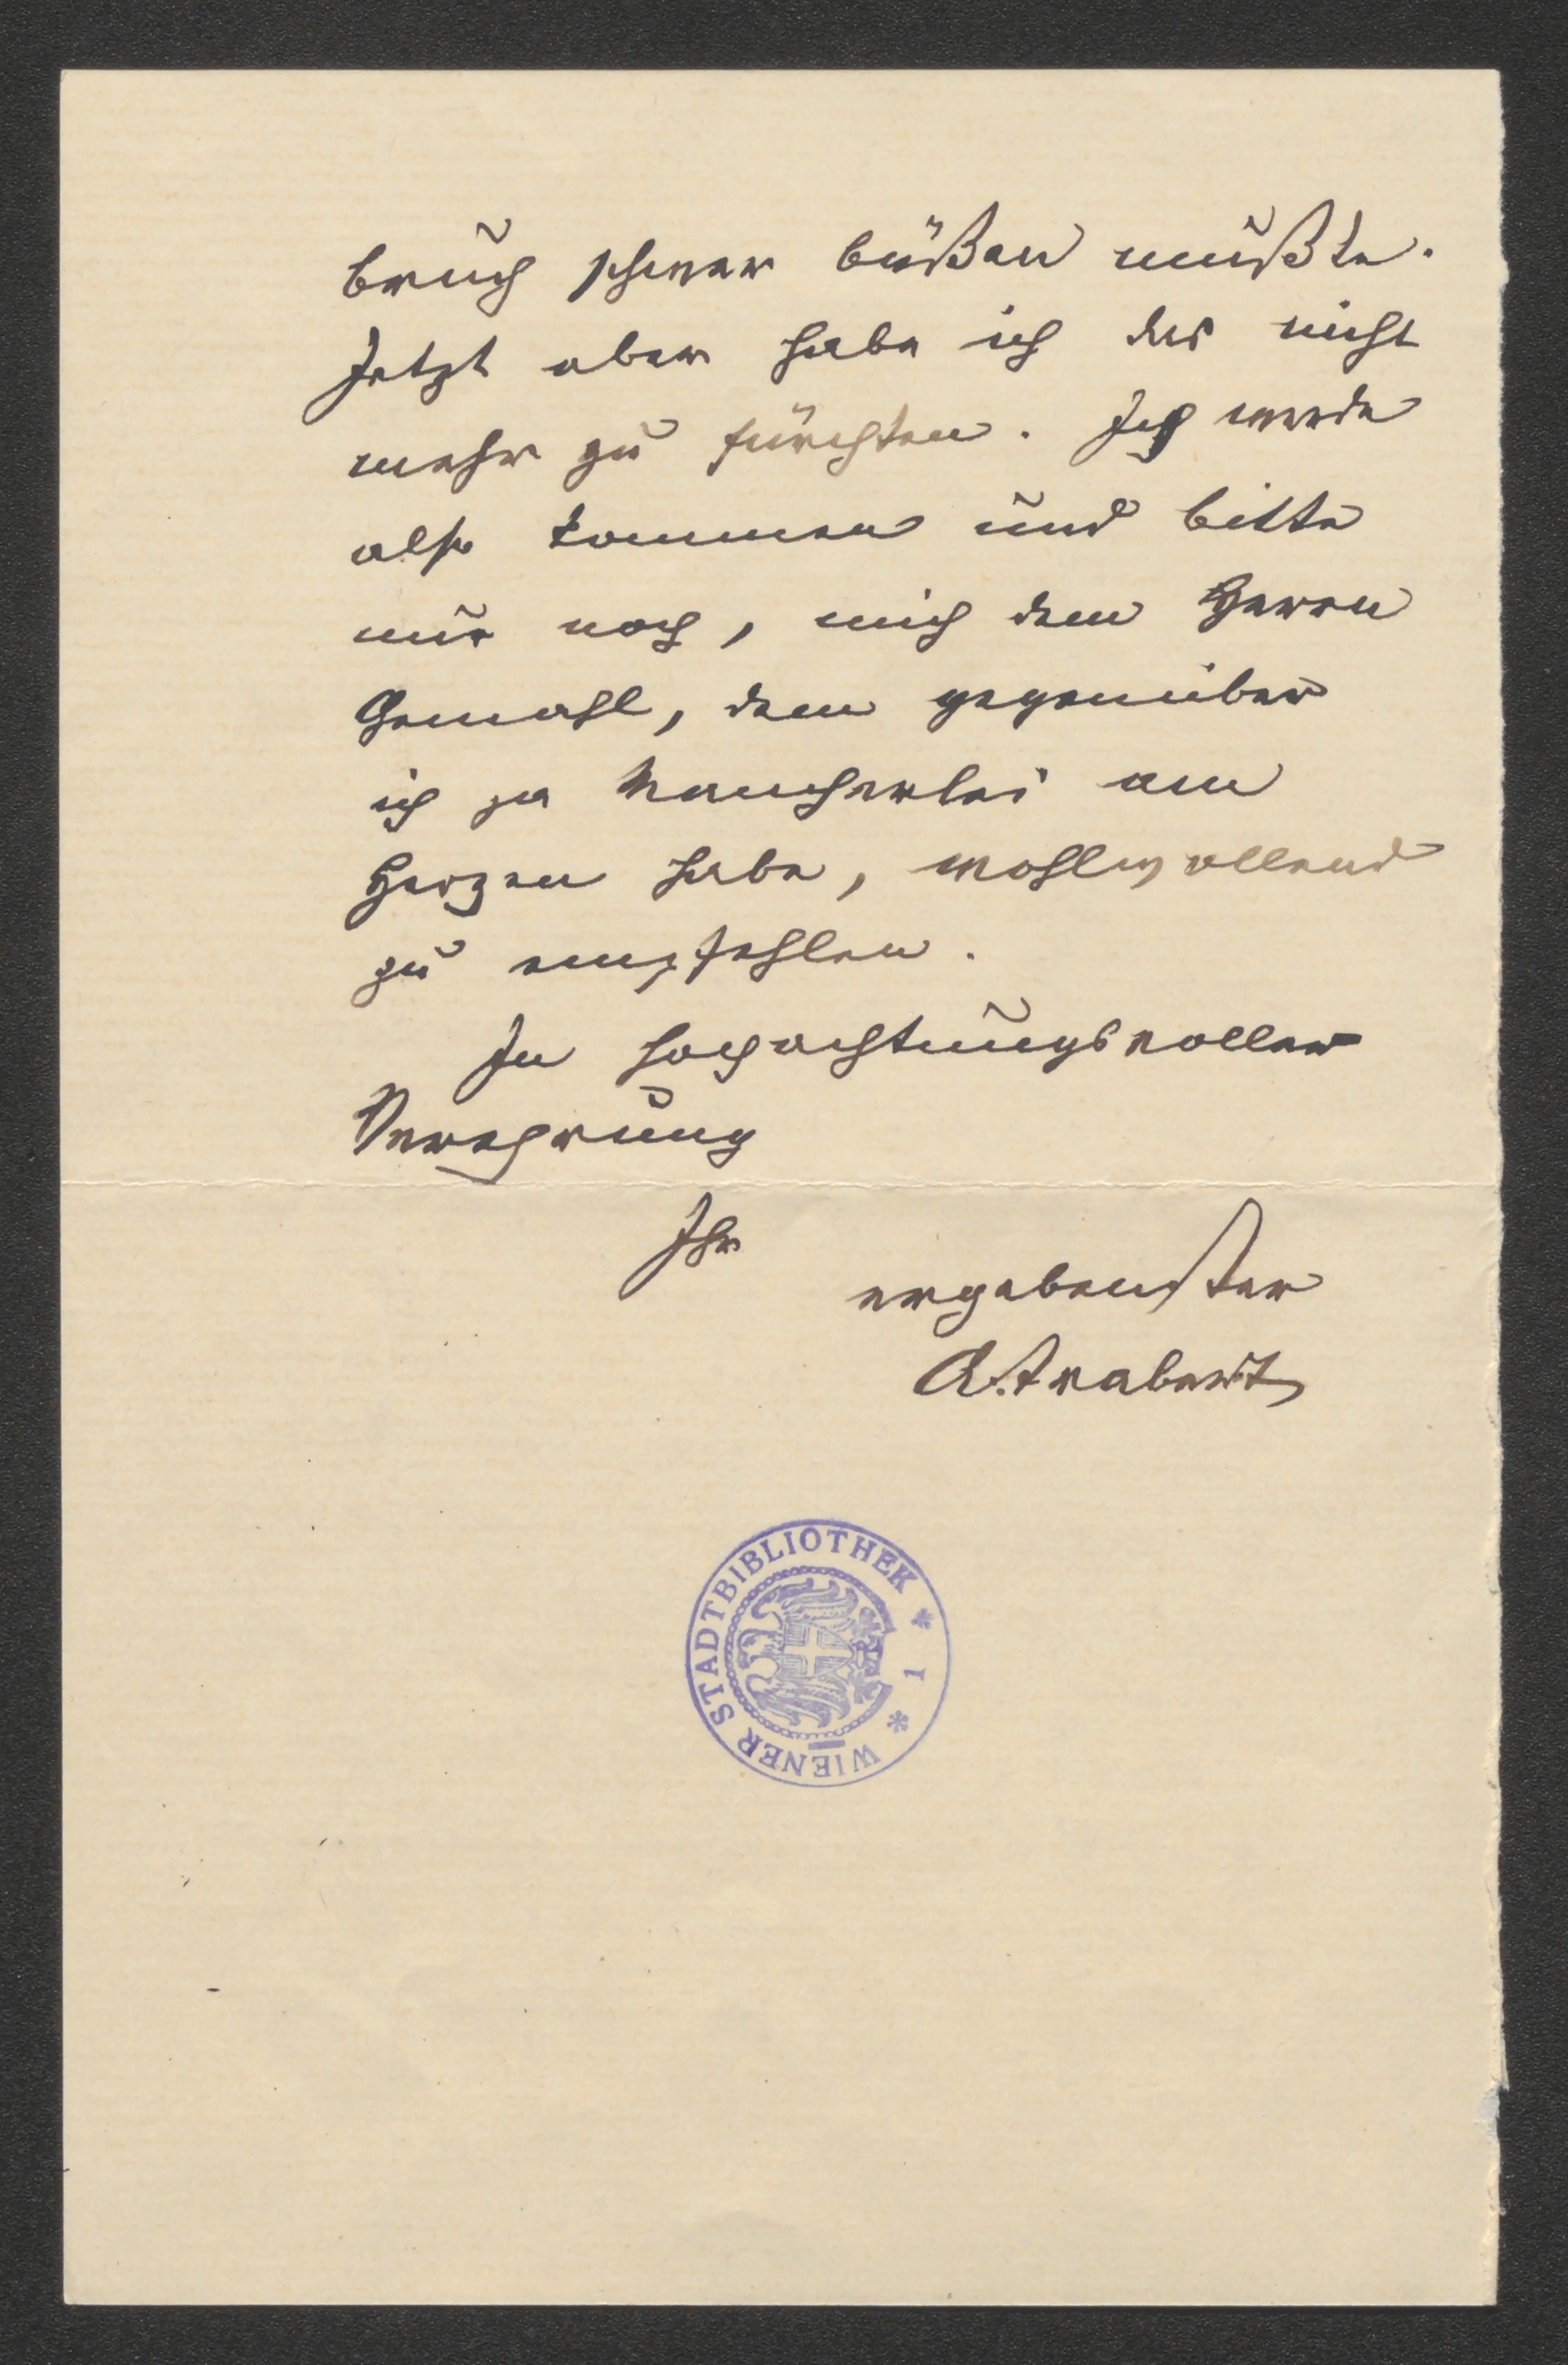 bruch schwer büßen müßte.
Jetzt aber habe ich das nicht
mehr zu fürchten. Ich werde
also kommen und bitte
nur noch, mich dem Herrn
Gemahl, dem gegenüber
ich ja Mancherlei am
Herzen habe, wohlwollend
zu empfehlen.
In hochachtungsvoller
Verehrung
Ihr
ergebenster
A. Trabert
WIENER STADTBIBLIOTHEK * 1 *